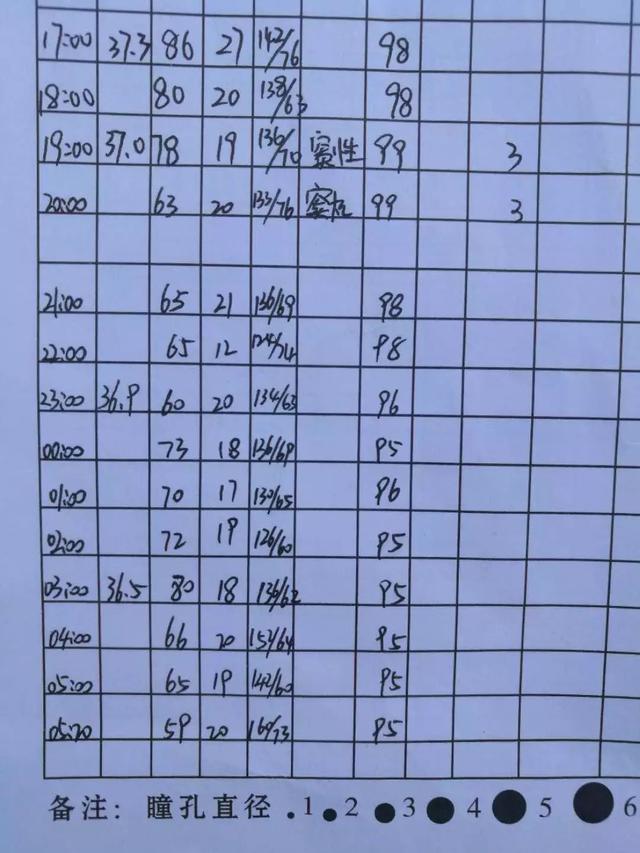 17:00 37.3 86 27 142/76 98
18:00 80 20 138/63 98
19:00 37.0 78 19 136/70 窦性 99 3
20:00 63 20 133/76 窦性 99 3
21:00 65 21 136/69 98
22:00 65 12 124/74 98
23:00 36.9 60 20 134/63 96
00:00 73 18 136/69 95
01:00 70 17 130/65 96
02:00 72 19 126/60 95
03:00 36.5 80 18 136/62 95
04:00 66 20 152/64 95
05:00 65 19 142/60 95
05:20 59 20 160/73 95
备注: 瞳孔直径 1 2 3 4 5 6